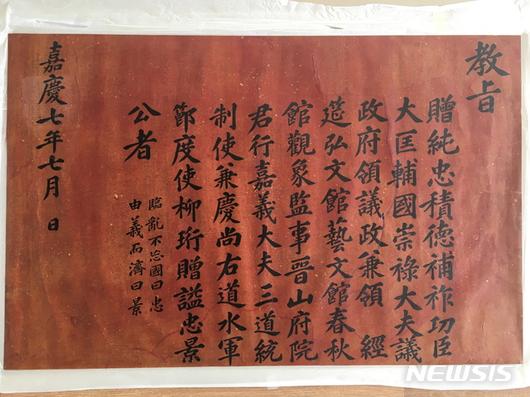 教旨
贈純忠積德補祚功臣
大匡輔國崇祿大夫議
政府領議政兼領 經
筵弘文館藝文館春秋
館觀象監事晉山府院
君行嘉義大夫三道統
制使兼慶尚右道水軍
節度使柳珩贈諡忠景
公者
臨亂不忘國曰忠
由義而濟曰景
嘉慶七年七月 日
NEWSIS